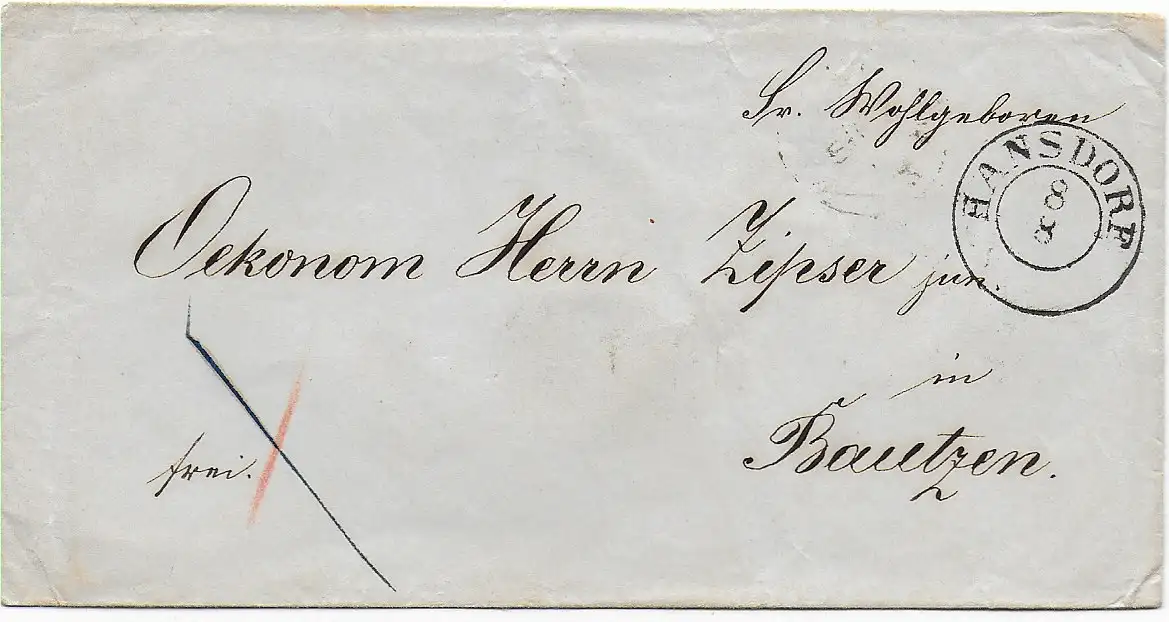 Sr. Wohlgeboren
HANSDORF
8 8
Oekonom Herrn Zipser jun.
in
Bautzen.
frei.